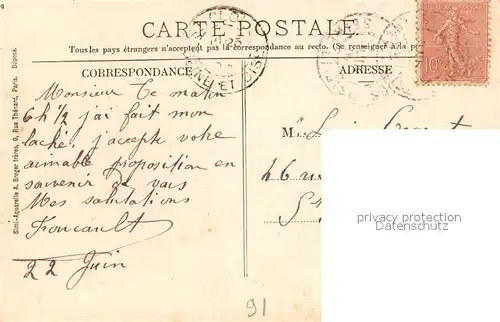 CARTE POSTALE
Tous les pays étrangers n'acceptent pas la correspondance au recto. (Se renseigner à la
CORRESPONDANCE
ADRESSE
10
Monsieur Ce matin
6 h ½ j'ai fait mon
laché, j'accepte votre
aimable proposition en
souvenir de vous
Mes salutations
Foucault
22 Juin
M
46 rue
91
Simi-Aquarelle A. Breger frères, 9, Rue Thénard, Paris. Déposé.
privacy protection
Datenschutz